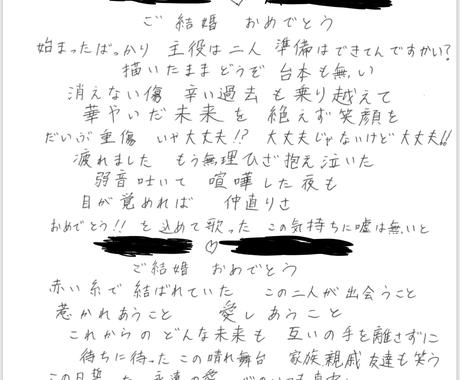 ♡
ご結婚 おめでとう
始まったばっかり 主役は二人 準備はできてんですかい?
描いたままどうぞ 台本も無い
消えない傷 辛い過去も乗り越えて
華やいだ未来を 絶えず笑顔を
だいぶ重傷 いや大丈夫!? 大丈夫じゃないけど大丈夫!!
疲れました もう無理ひざ抱え泣いた
弱音吐いて 喧嘩した夜も
目が覚めれば 仲直りさ
おめでとう!! を込めて歌った この気持ちに嘘は無いと
♡
ご結婚 おめでとう
赤い糸で 結ばれていた この二人が出会うこと
惹かれあうこと 愛しあうこと
これからの どんな未来も 互いの手を離さずに
待ちに待った この晴れ舞台 家族親戚 友達も笑う